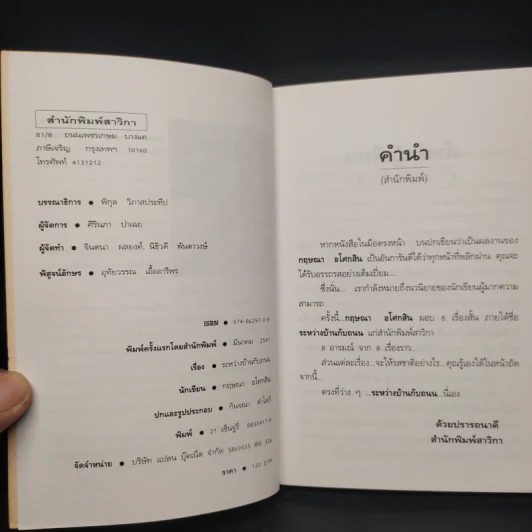 สำนักพิมพ์สาวิกา
81/8 ถนนเพชรเกษม บางแค
ภาษีเจริญ กรุงเทพฯ 10160
โทรศัพท์ 4131212
บรรณาธิการ ● พิกุล วิภาสประทีป
ผู้จัดการ ● ศิรินภา ปาเฉย
ผู้จัดทำ ● จินตนา ผลยงค์, นิธิวดี พันดาวงษ์
พิสูจน์อักษร ● อุทัยวรรณ เอื้ออารีพร
ISBN ● 974-86297-0-8
พิมพ์ครั้งแรกโดยสำนักพิมพ์ ● มีนาคม 2541
เรื่อง ● ระหว่างบ้านกับถนน
นักเขียน ● กฤษณา อโศกสิน
ปกและรูปประกอบ ● กันจณา ดำโสภี
พิมพ์ ● 21 เซ็นจูรี่
จัดจำหน่าย ● บริษัท แปลน พับลิชชิ่ง จำกัด 5869555 ต่อ
ราคา ● 130 บาท
คำนำ
(สำนักพิมพ์)
หากหนังสือในมือตรงหน้า บนปกเขียนว่าเป็นผลงานของ
กฤษณา อโศกสิน เป็นอันการันตีได้ว่าทุกหน้าที่พลิกผ่าน คุณจะ
ได้รับอรรถรสอย่างเต็มเปี่ยม...
ซึ่งนั่น... เรากำลังหมายถึงนวนิยายของนักเขียนผู้มากความ
สามารถ
ครั้งนี้...กฤษณา อโศกสิน มอบ 8 เรื่องสั้น ภายใต้ชื่อ
ระหว่างบ้านกับถนน แก่สำนักพิมพ์สาวิกา
8 อารมณ์ จาก 8 เรื่องราว...
ส่วนแต่ละเรื่อง...จะให้รสชาติอย่างไร...คุณรู้เองได้ในหน้าถัด
จากนี้...
ตรงที่ว่าง ๆ ...ระหว่างบ้านกับถนน...นี่เอง
ด้วยปรารถนาดี
สำนักพิมพ์สาวิกา